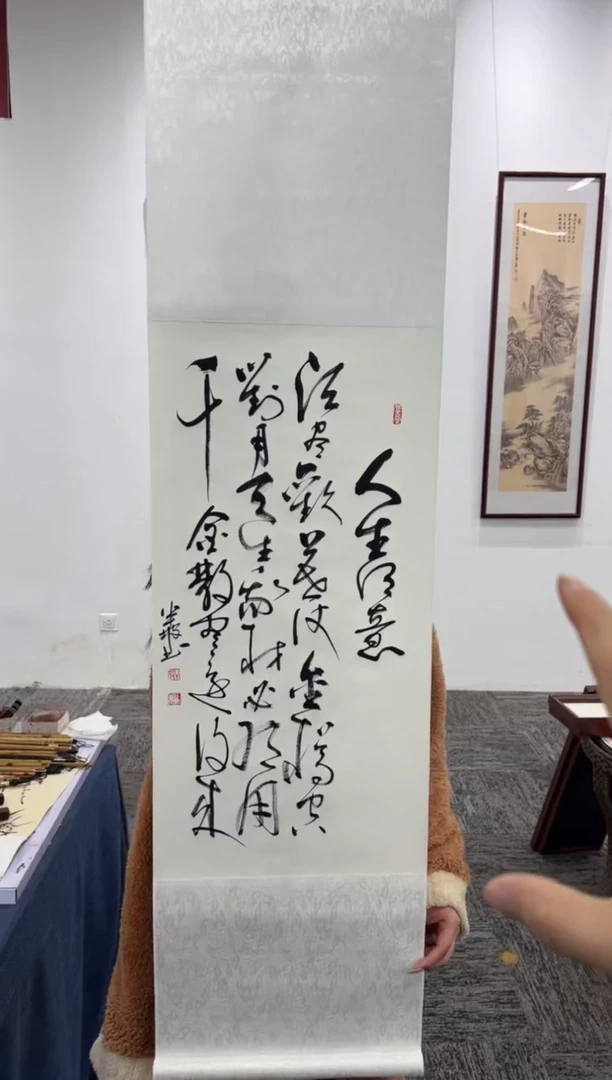 人生得意
須尽歡莫使金樽空
對月天生我材必有用
千金散尽还復来